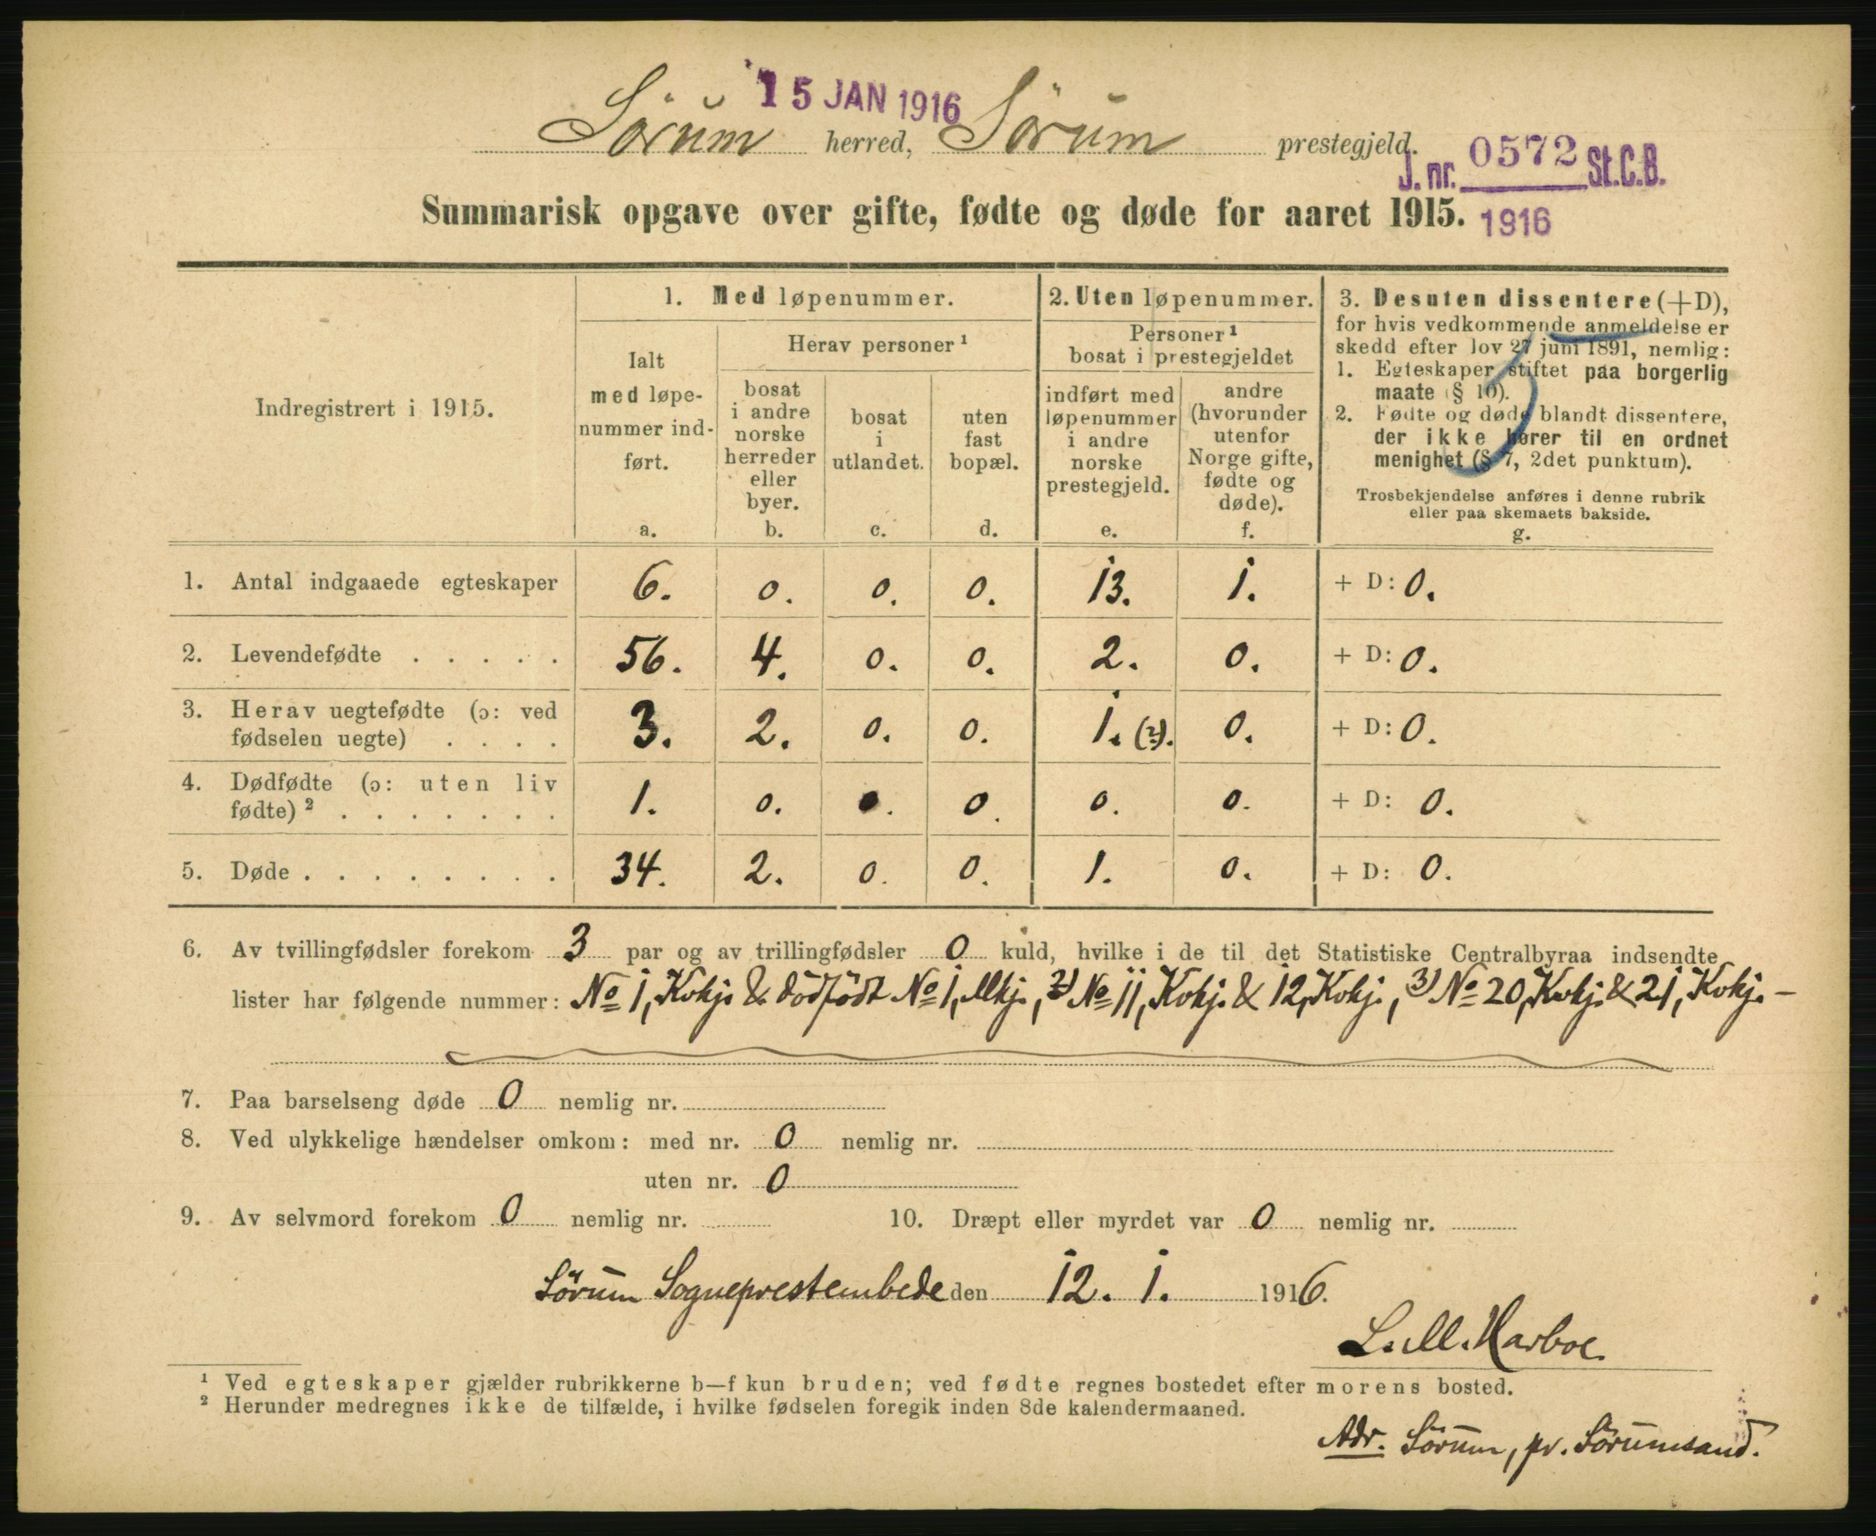 15 JAN 1916
Sörŭm herred, Sörum prestegjeld.
J. nr. 0572 St.C.B.
1916
Summarisk opgave over gifte, fødte og døde for aaret 1915.
Indregistrert i 1915.
1. Med løpenummer.
Ialt med løpe-
nummer ind-
ført.
a.
Herav personer ¹
bosat
i andre
norske
herreder
eller
byer.
b.
bosat
i
utlandet.
c.
uten
fast
bopæl.
d.
2. Uten løpenummer.
Personer ¹
bosat i prestegjeldet
indført med
løpenummer
i andre
norske
prestegjeld.
e.
andre
(hvorunder
utenfor
Norge gifte,
fødte og
døde).
f.
3. Desuten dissentere (+D),
for hvis vedkommende anmeldelse er
skedd efter lov 27 juni 1891, nemlig:
1. Egteskaper stiftet paa borgerlig
maate (§ 10).
2. Fødte og døde blandt dissentere,
der ikke hører til en ordnet
menighet (§ 7, 2det punktum).
Trosbekjendelse anføres i denne rubrik
eller paa skemaets bakside.
g.
1. Antal indgaaede egteskaper 6. 0. 0. 0. 13. 1. + D: 0.
2. Levendefødte . . . . . 56. 4. 0. 0. 2. 0. + D: 0.
3. Herav uegtefødte (ɔ: ved
fødselen uegte) . . . . 3. 2. 0. 0. 1. (2). 0. + D: 0.
4. Dødfødte (ɔ: uten liv
fødte) ² . . . . . . . 1. 0. 0. 0. 0. 0. + D: 0.
5. Døde . . . . . . . . 34. 2. 0. 0. 1. 0. + D: 0.
6. Av tvillingfødsler forekom 3 par og av trillingfødsler 0 kuld, hvilke i de til det Statistiske Centralbyraa indsendte
lister har følgende nummer: No 1, Kvkj. & dödfödt No 1, Mkj., 2) No 11, Kvkj. & 12, Kvkj., 3) No 20, Kvkj. & 21, Kvkj. –
7. Paa barselseng døde 0 nemlig nr.
8. Ved ulykkelige hændelser omkom: med nr. 0 nemlig nr.
uten nr. 0
9. Av selvmord forekom 0 nemlig nr.
10. Dræpt eller myrdet var 0 nemlig nr.
Sörum Sogneprestembede den 12. 1. 1916.
L. M. Harboe.
¹ Ved egteskaper gjælder rubrikkerne b—f kun bruden; ved fødte regnes bostedet efter morens bosted.
² Herunder medregnes ikke de tilfælde, i hvilke fødselen foregik inden 8de kalendermaaned.
Adr. Sörum, pr. Sörumsand.